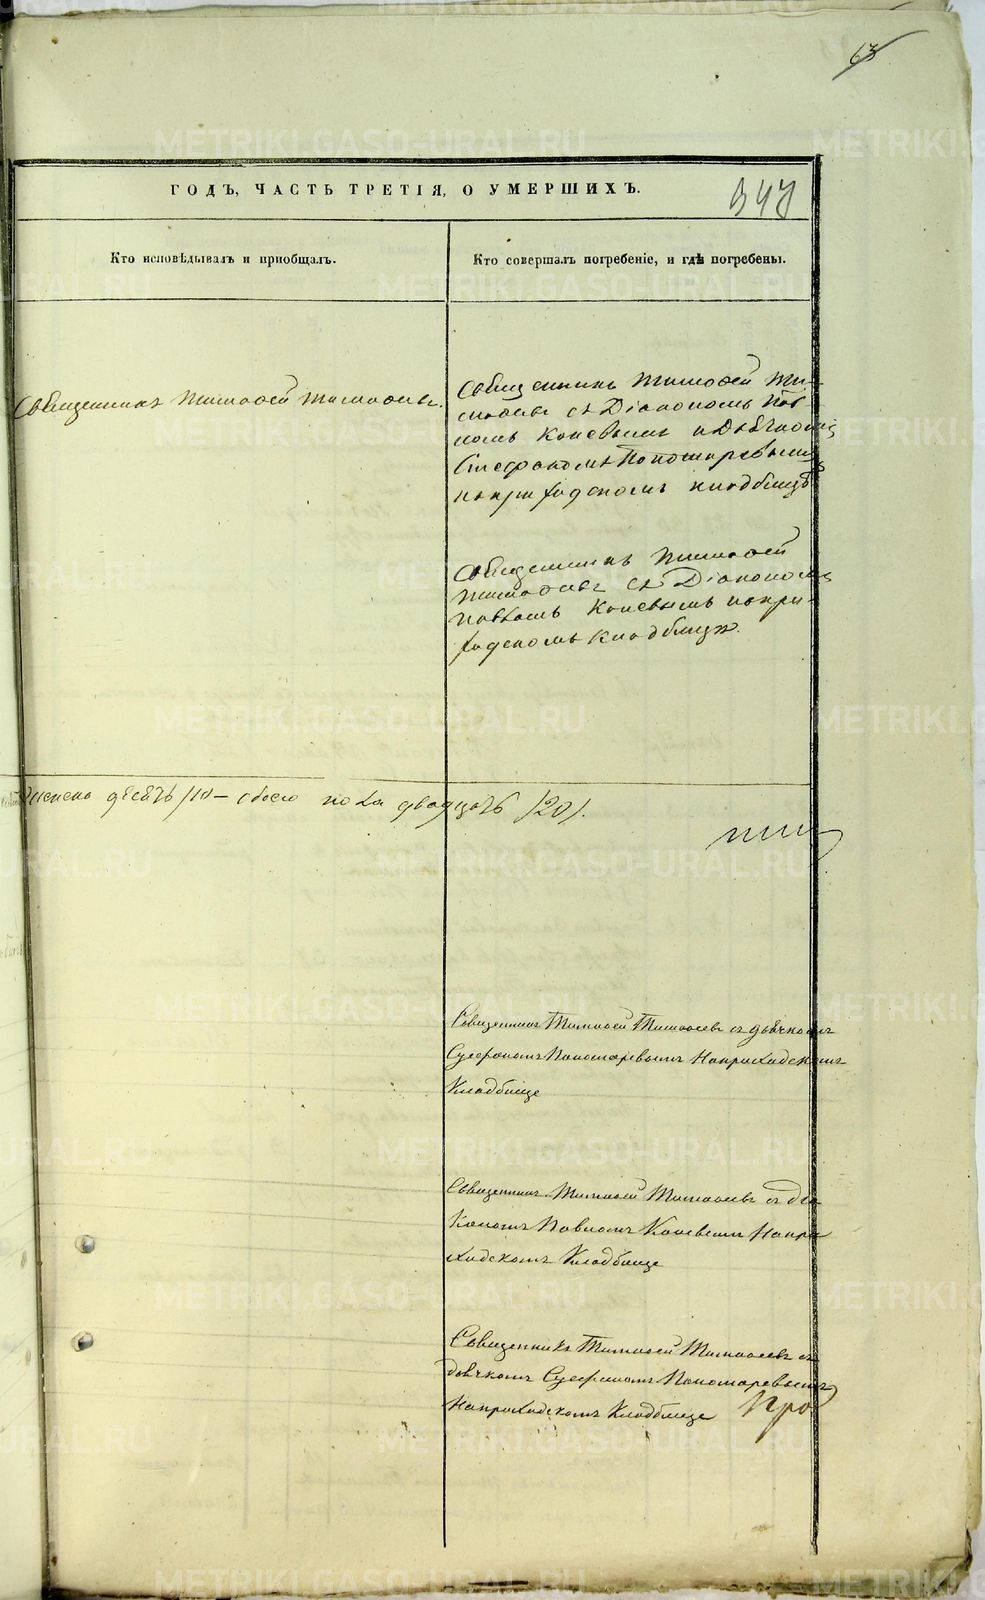 63
ГОДЪ, ЧАСТЬ ТРЕТІЯ, О УМЕРШИХЪ.
347
Кто исповѣдывалъ и приобщалъ.
Кто совершалъ погребеніе, и гдѣ погребены.
Священникъ Тимофей Тимофеевъ.
Священникъ Тимофей Ти-
мофеевъ съ Діакономъ Пав-
ломъ Коневымъ и Дьячкомъ
Стефаномъ Пономаревымъ
на приходскомъ кладбищѣ
Священникъ Тимофей
Тимофеевъ съ Діакономъ
Павломъ Коневымъ на при-
ходскомъ кладбищѣ.
женска десять /10 – обоего пола двадцать /20/.
Священникъ Тимофей Тимофеевъ съ дьячкомъ
Стефаномъ Пономаревымъ На приходскомъ
Кладбище
Священникъ Тимофей Тимофеевъ съ діа
кономъ Павломъ Коневымъ На при
ходскомъ Кладбище
Священникъ Тимофей Тимофеевъ съ
дьячкомъ Стефаномъ Пономаревымъ
На приходскомъ Кладбище
Про
METRIKI.GASO-URAL.RU